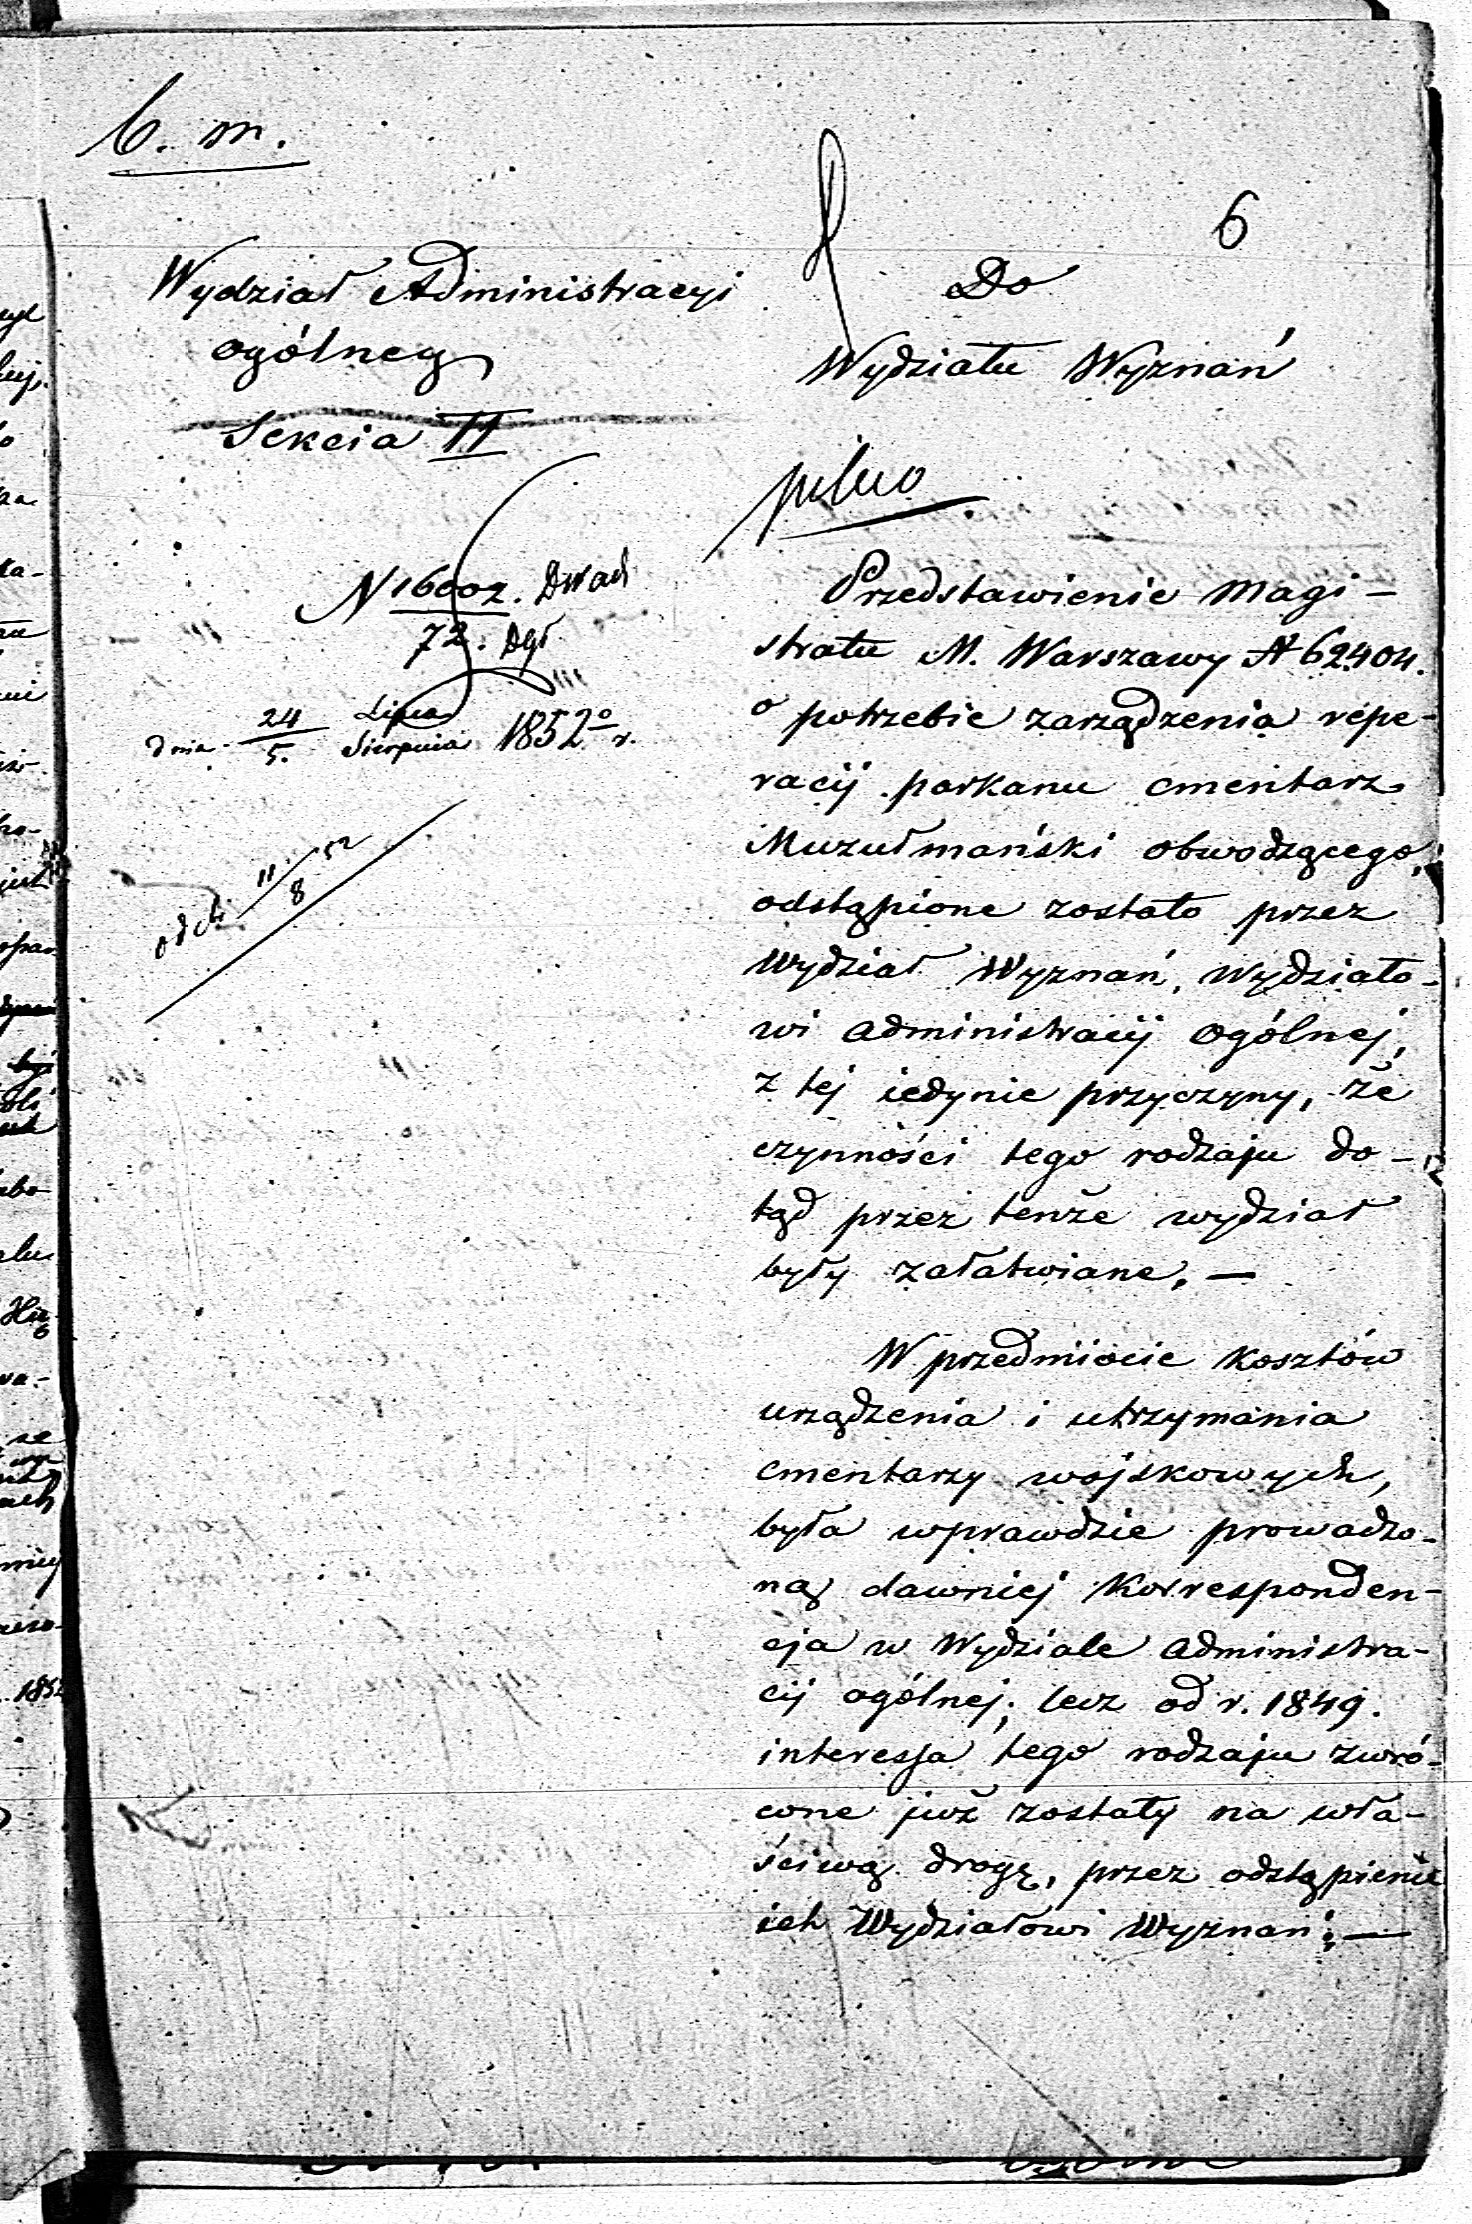 b. m.
6
Wydział Administracyi
ogólney
Sekcia II
N 16002. Dwad
72. Dgł
dnia 24 Lipca
5. Sierpnia 1852o r.
odeb. 11/8 52
Do
Wydziału Wyznań
pilno
Przedstawienie Magi-
stratu M. Warszawy N 62404.
o potrzebie zarządzenia repe-
racij parkanu cmentarz
Muzułmański obwodzącego,
odstąpione zostało przez
Wydział Wyznań, Wydziało-
wi administracij ogólnej,
z tej iedynie przyczyny, że
czynności tego rodzaju do-
tąd przez tenże wydział
były załatwiane. —
W przedmiocie kosztów
urządzenia i utrzymania
cmentarzy wojskowych,
była wprawdzie prowadzo-
ną dawniej korresponden-
cja w Wydziale administra-
cij ogólnej; lecz od r. 1849.
interesja tego rodzaju zwró-
cone już zostały na wła-
ściwą drogę, przez odstąpienie
ich Wydziałowi Wyznań; —